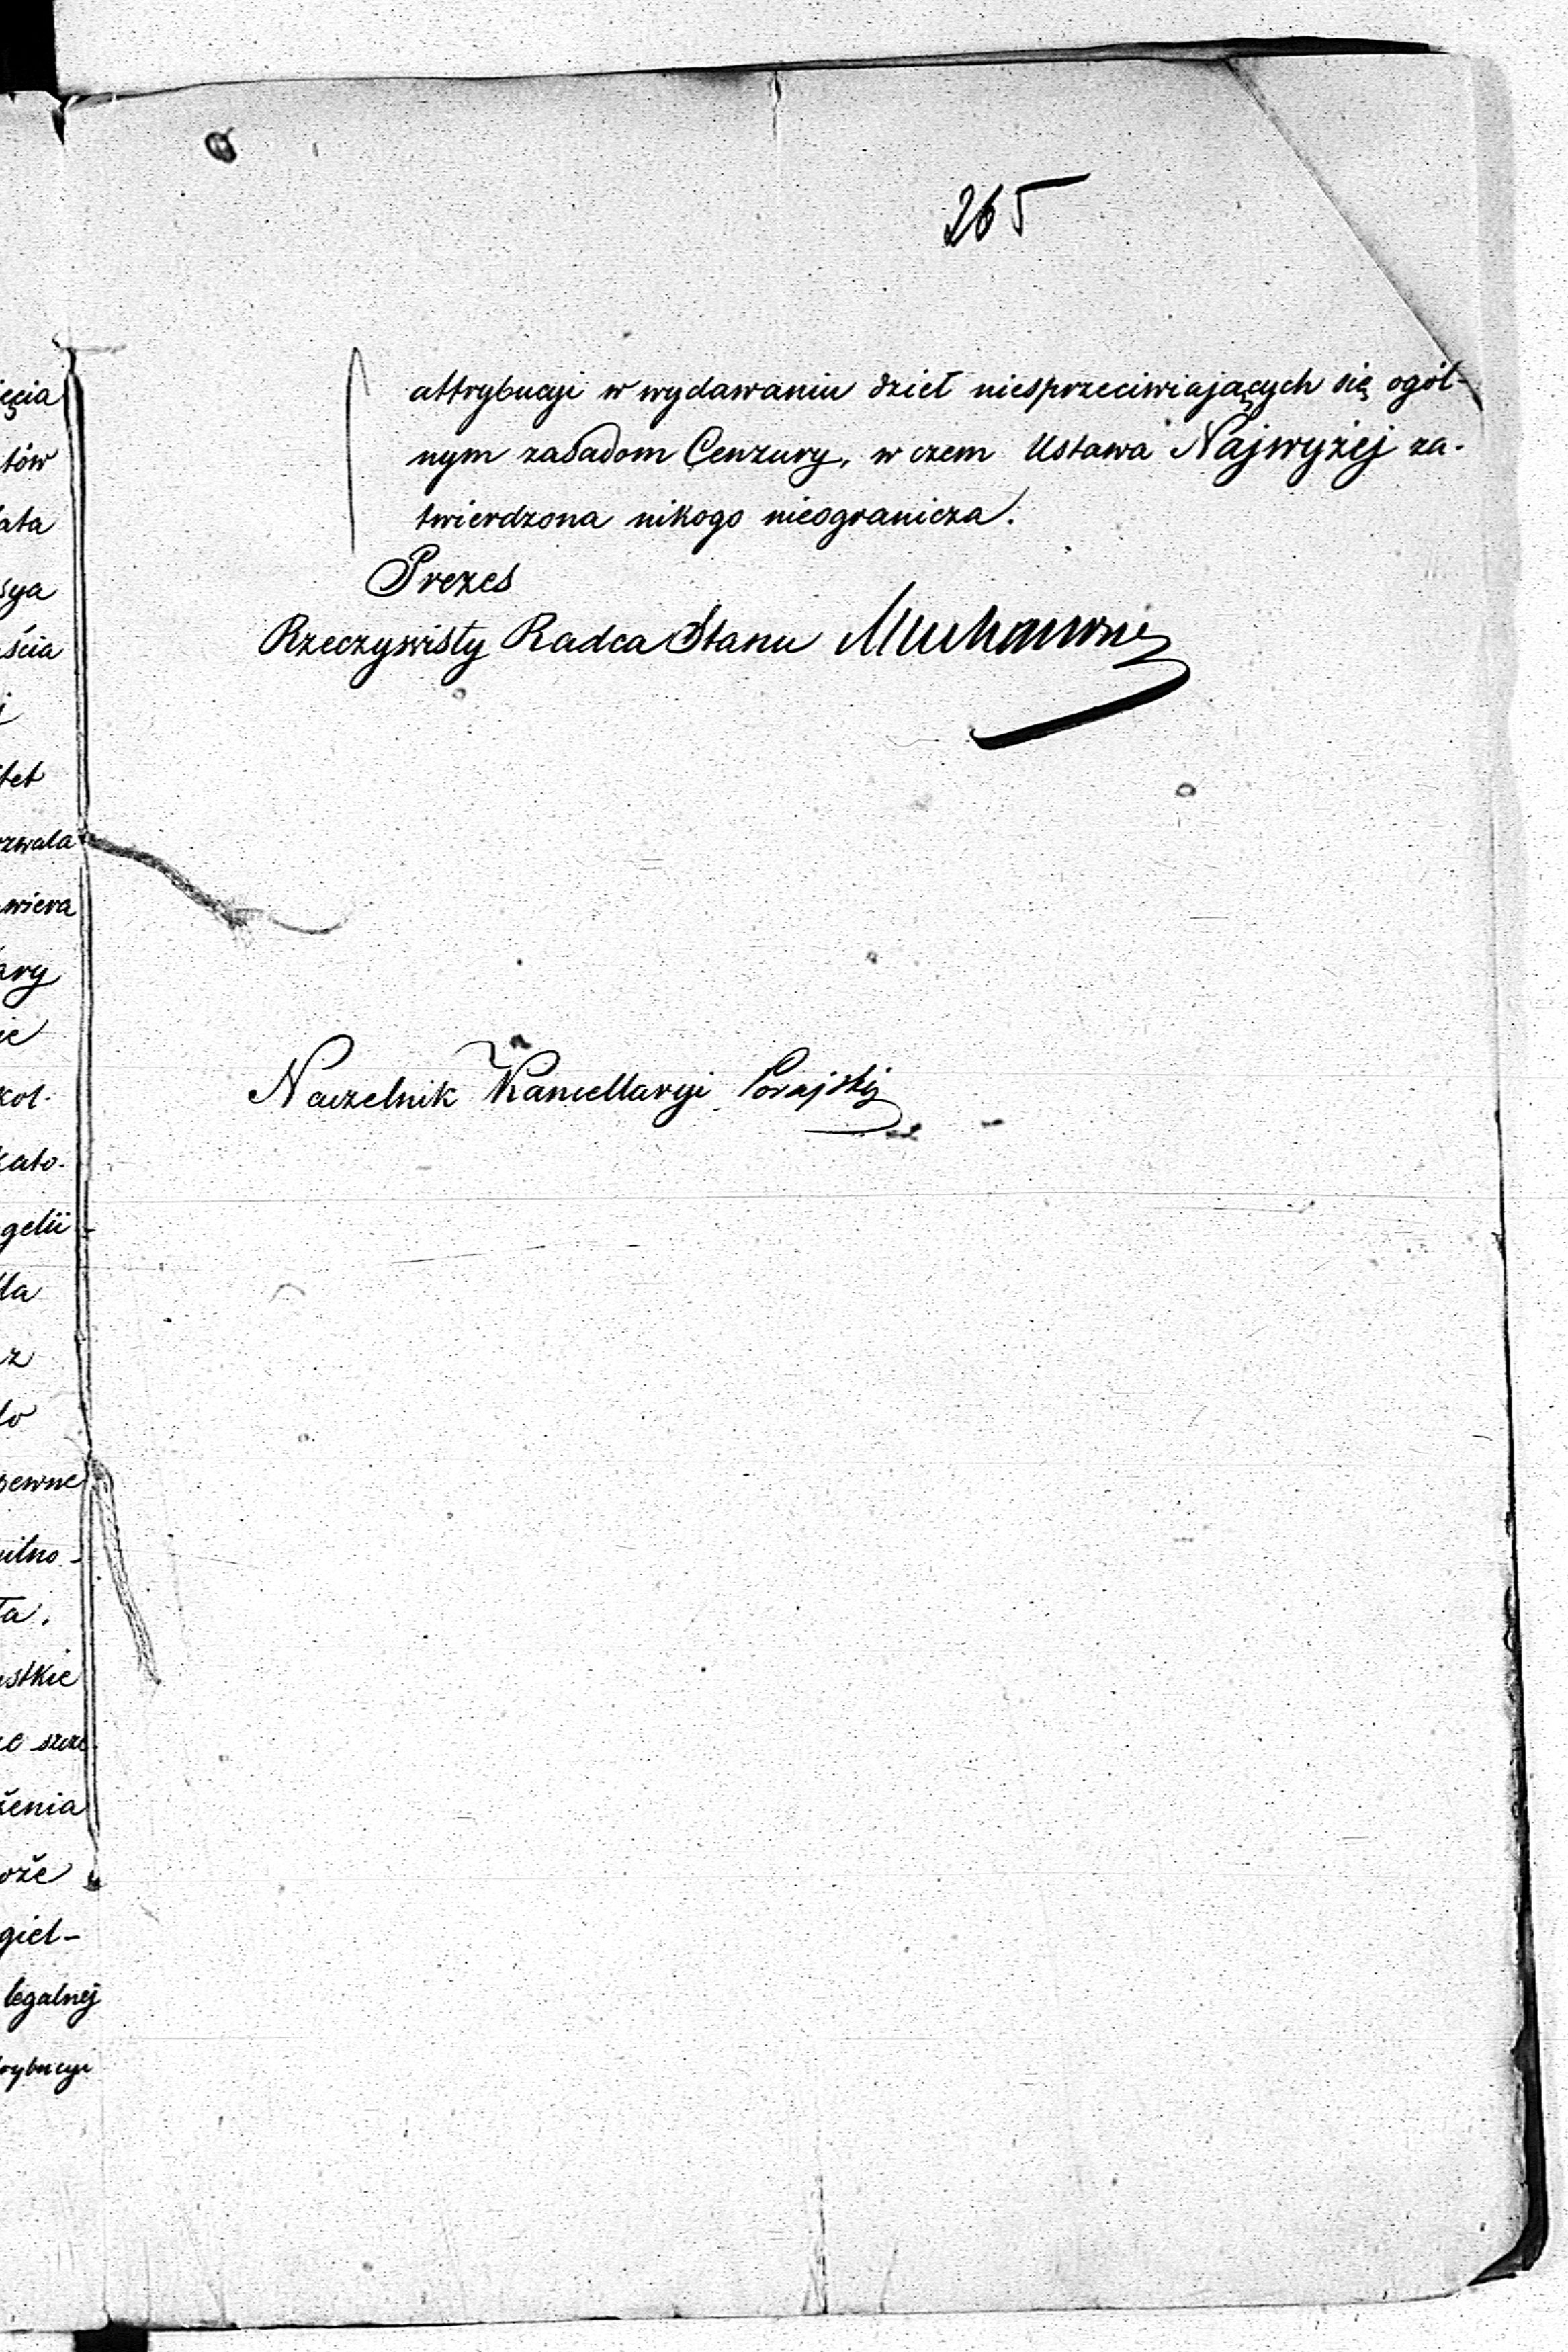 265
attrybucyi w wydawaniu dzieł niesprzeciwiających się ogól-
nym zasadom Cenzury, w czem Ustawa Najwyżej za-
twierdzona nikogo nieogranicza.
Prezes
Rzeczywisty Radca Stanu Muchanow
Naczelnik Kancellaryi
ięcia
tów
ata
sya
ścia
j
tet
zwala
wiera
ary
ie
kol-
kato-
gelii
la
z
do
pewne
ilno-
ła.
stkie
e szcze-
żenia
oże
giel-
legalnej
trybucyi